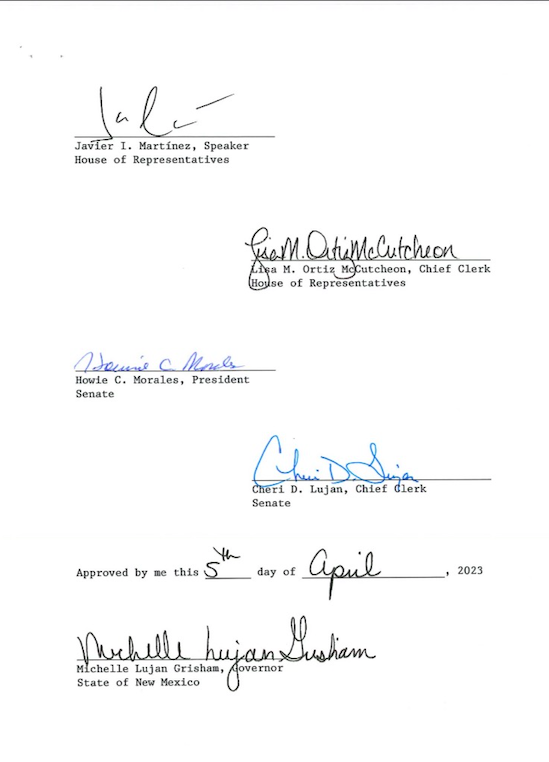 Javier I. Martínez, Speaker
House of Representatives
Lisa M. Ortiz McCutcheon
Lisa M. Ortiz McCutcheon, Chief Clerk
House of Representatives
Howie C. Morales
Howie C. Morales, President
Senate
Cheri D. Lujan
Cheri D. Lujan, Chief Clerk
Senate
Approved by me this 5th day of April, 2023
Michelle Lujan Grisham
Michelle Lujan Grisham, Governor
State of New Mexico